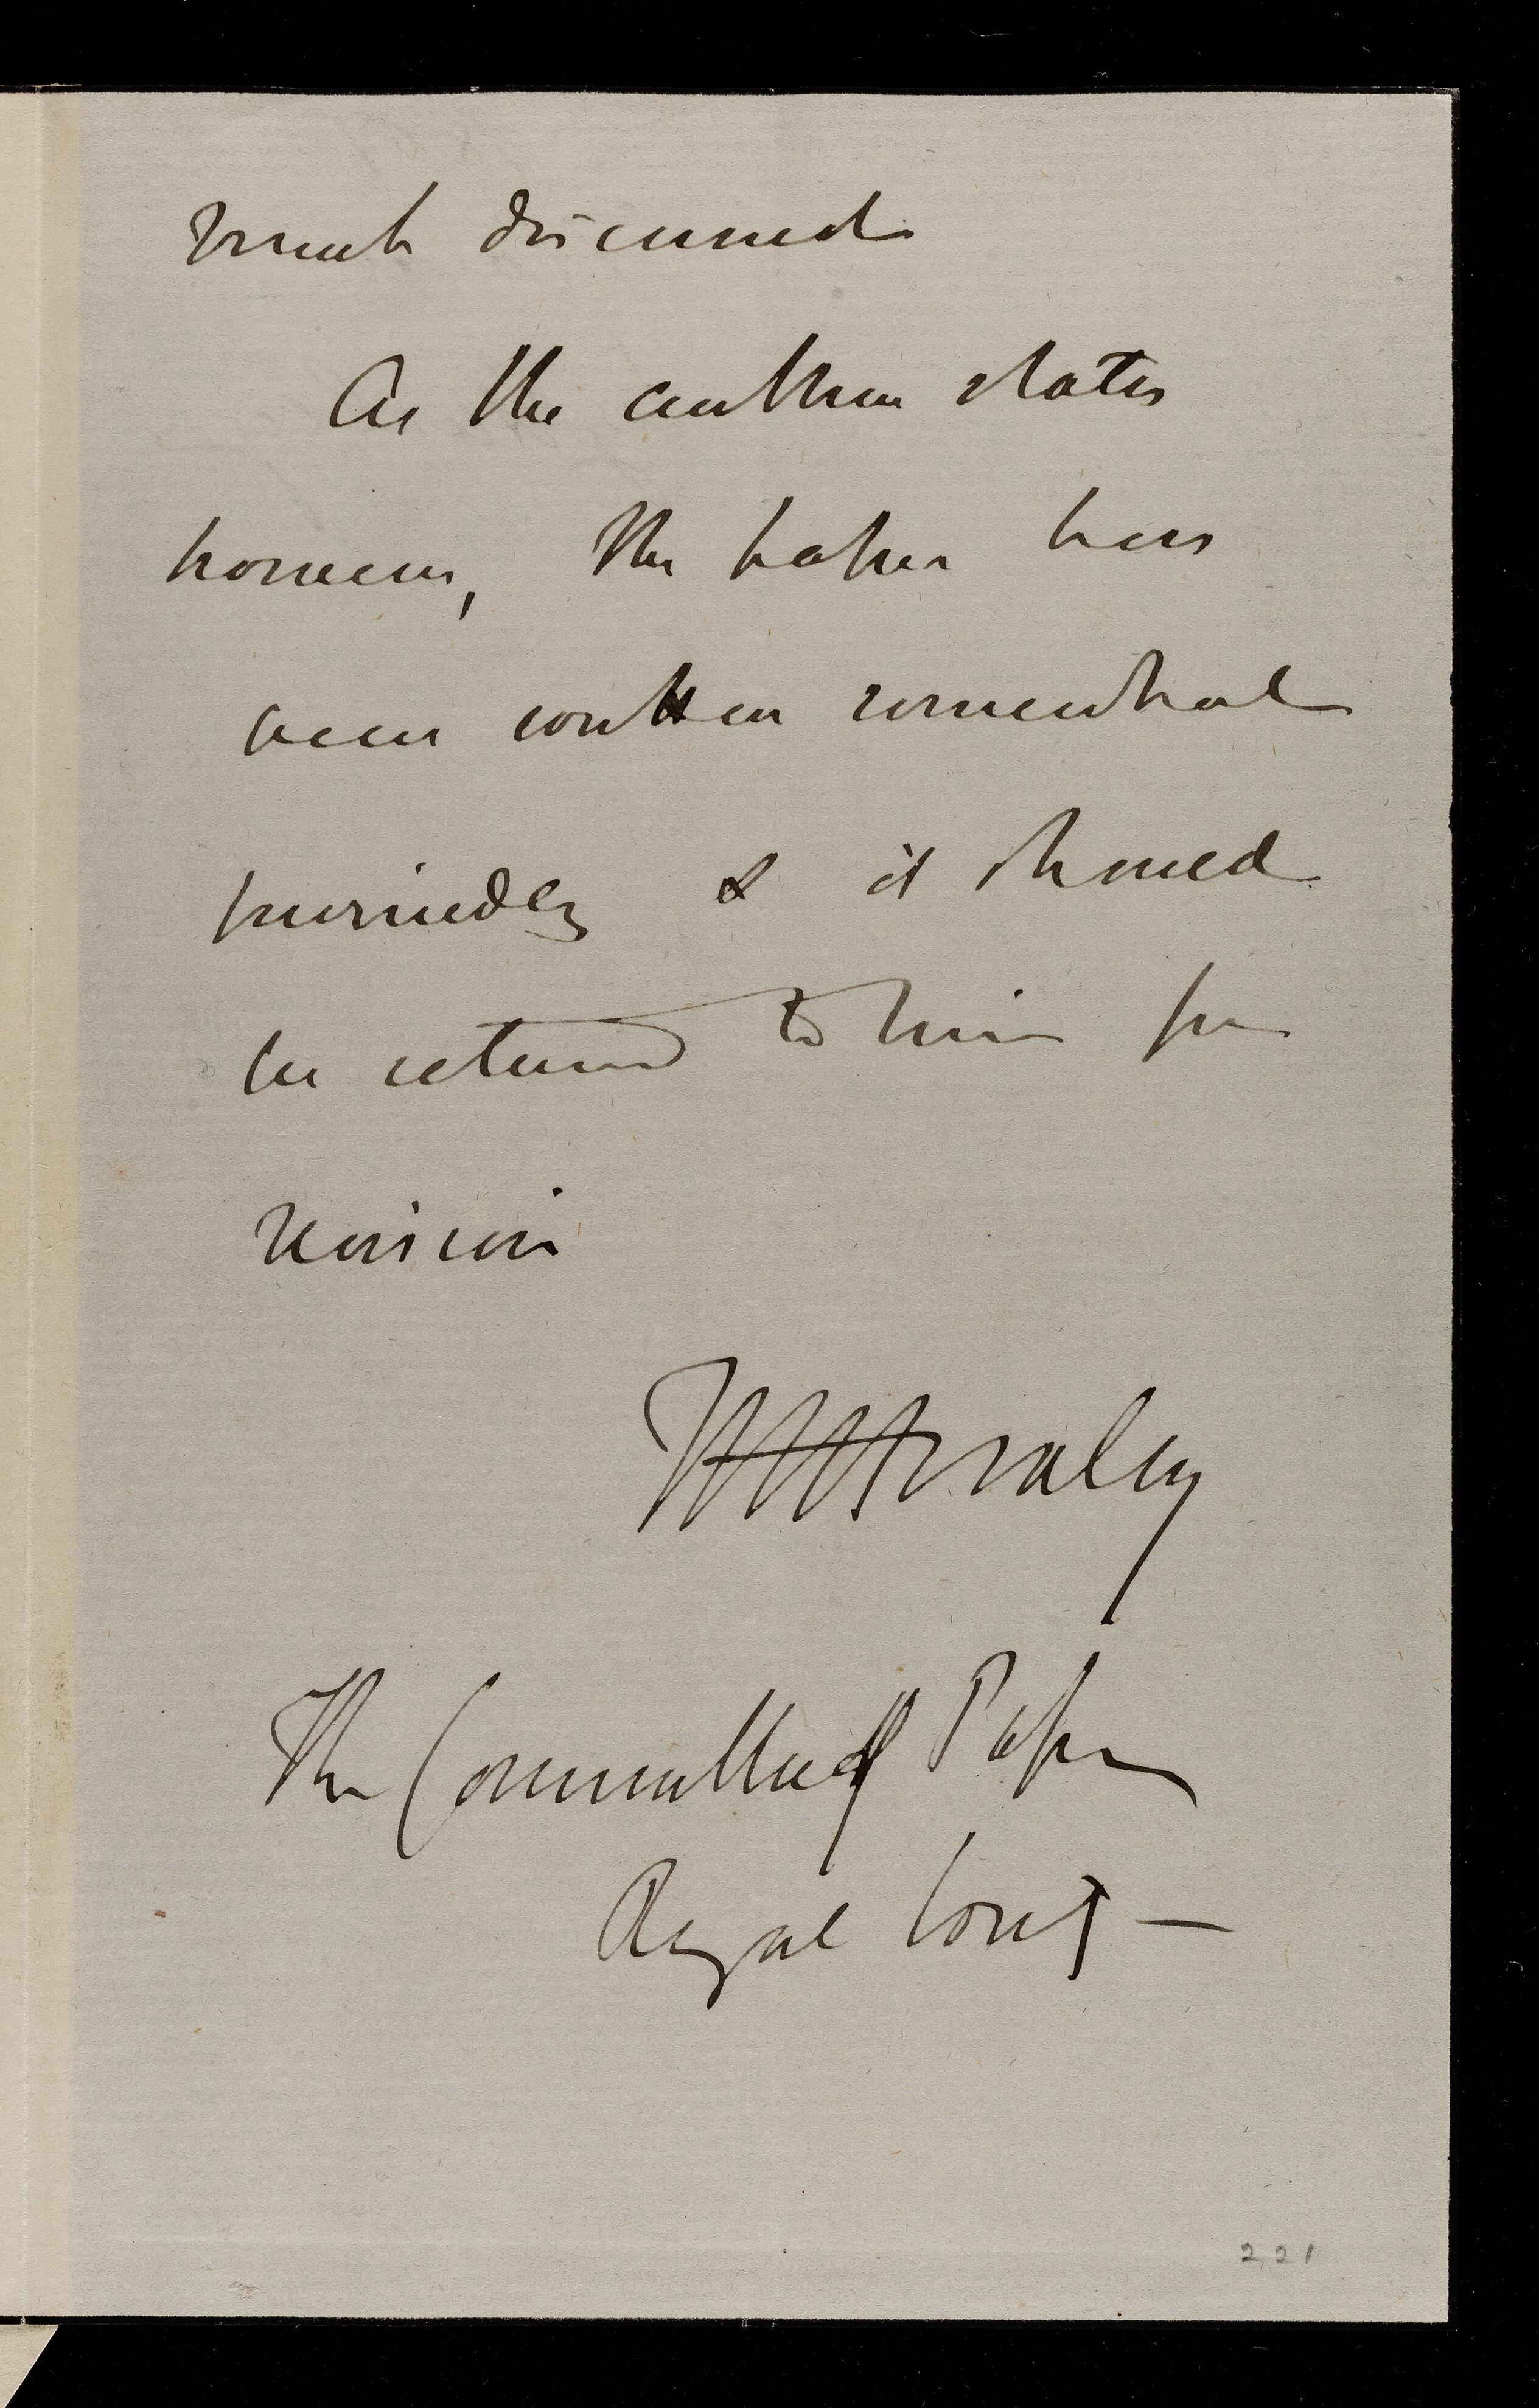 much discussed
As the author states
however, the paper has
been written somewhat
hurriedly & it should
be returned to him for
revision
The Committee of Papers
Royal Society —
221